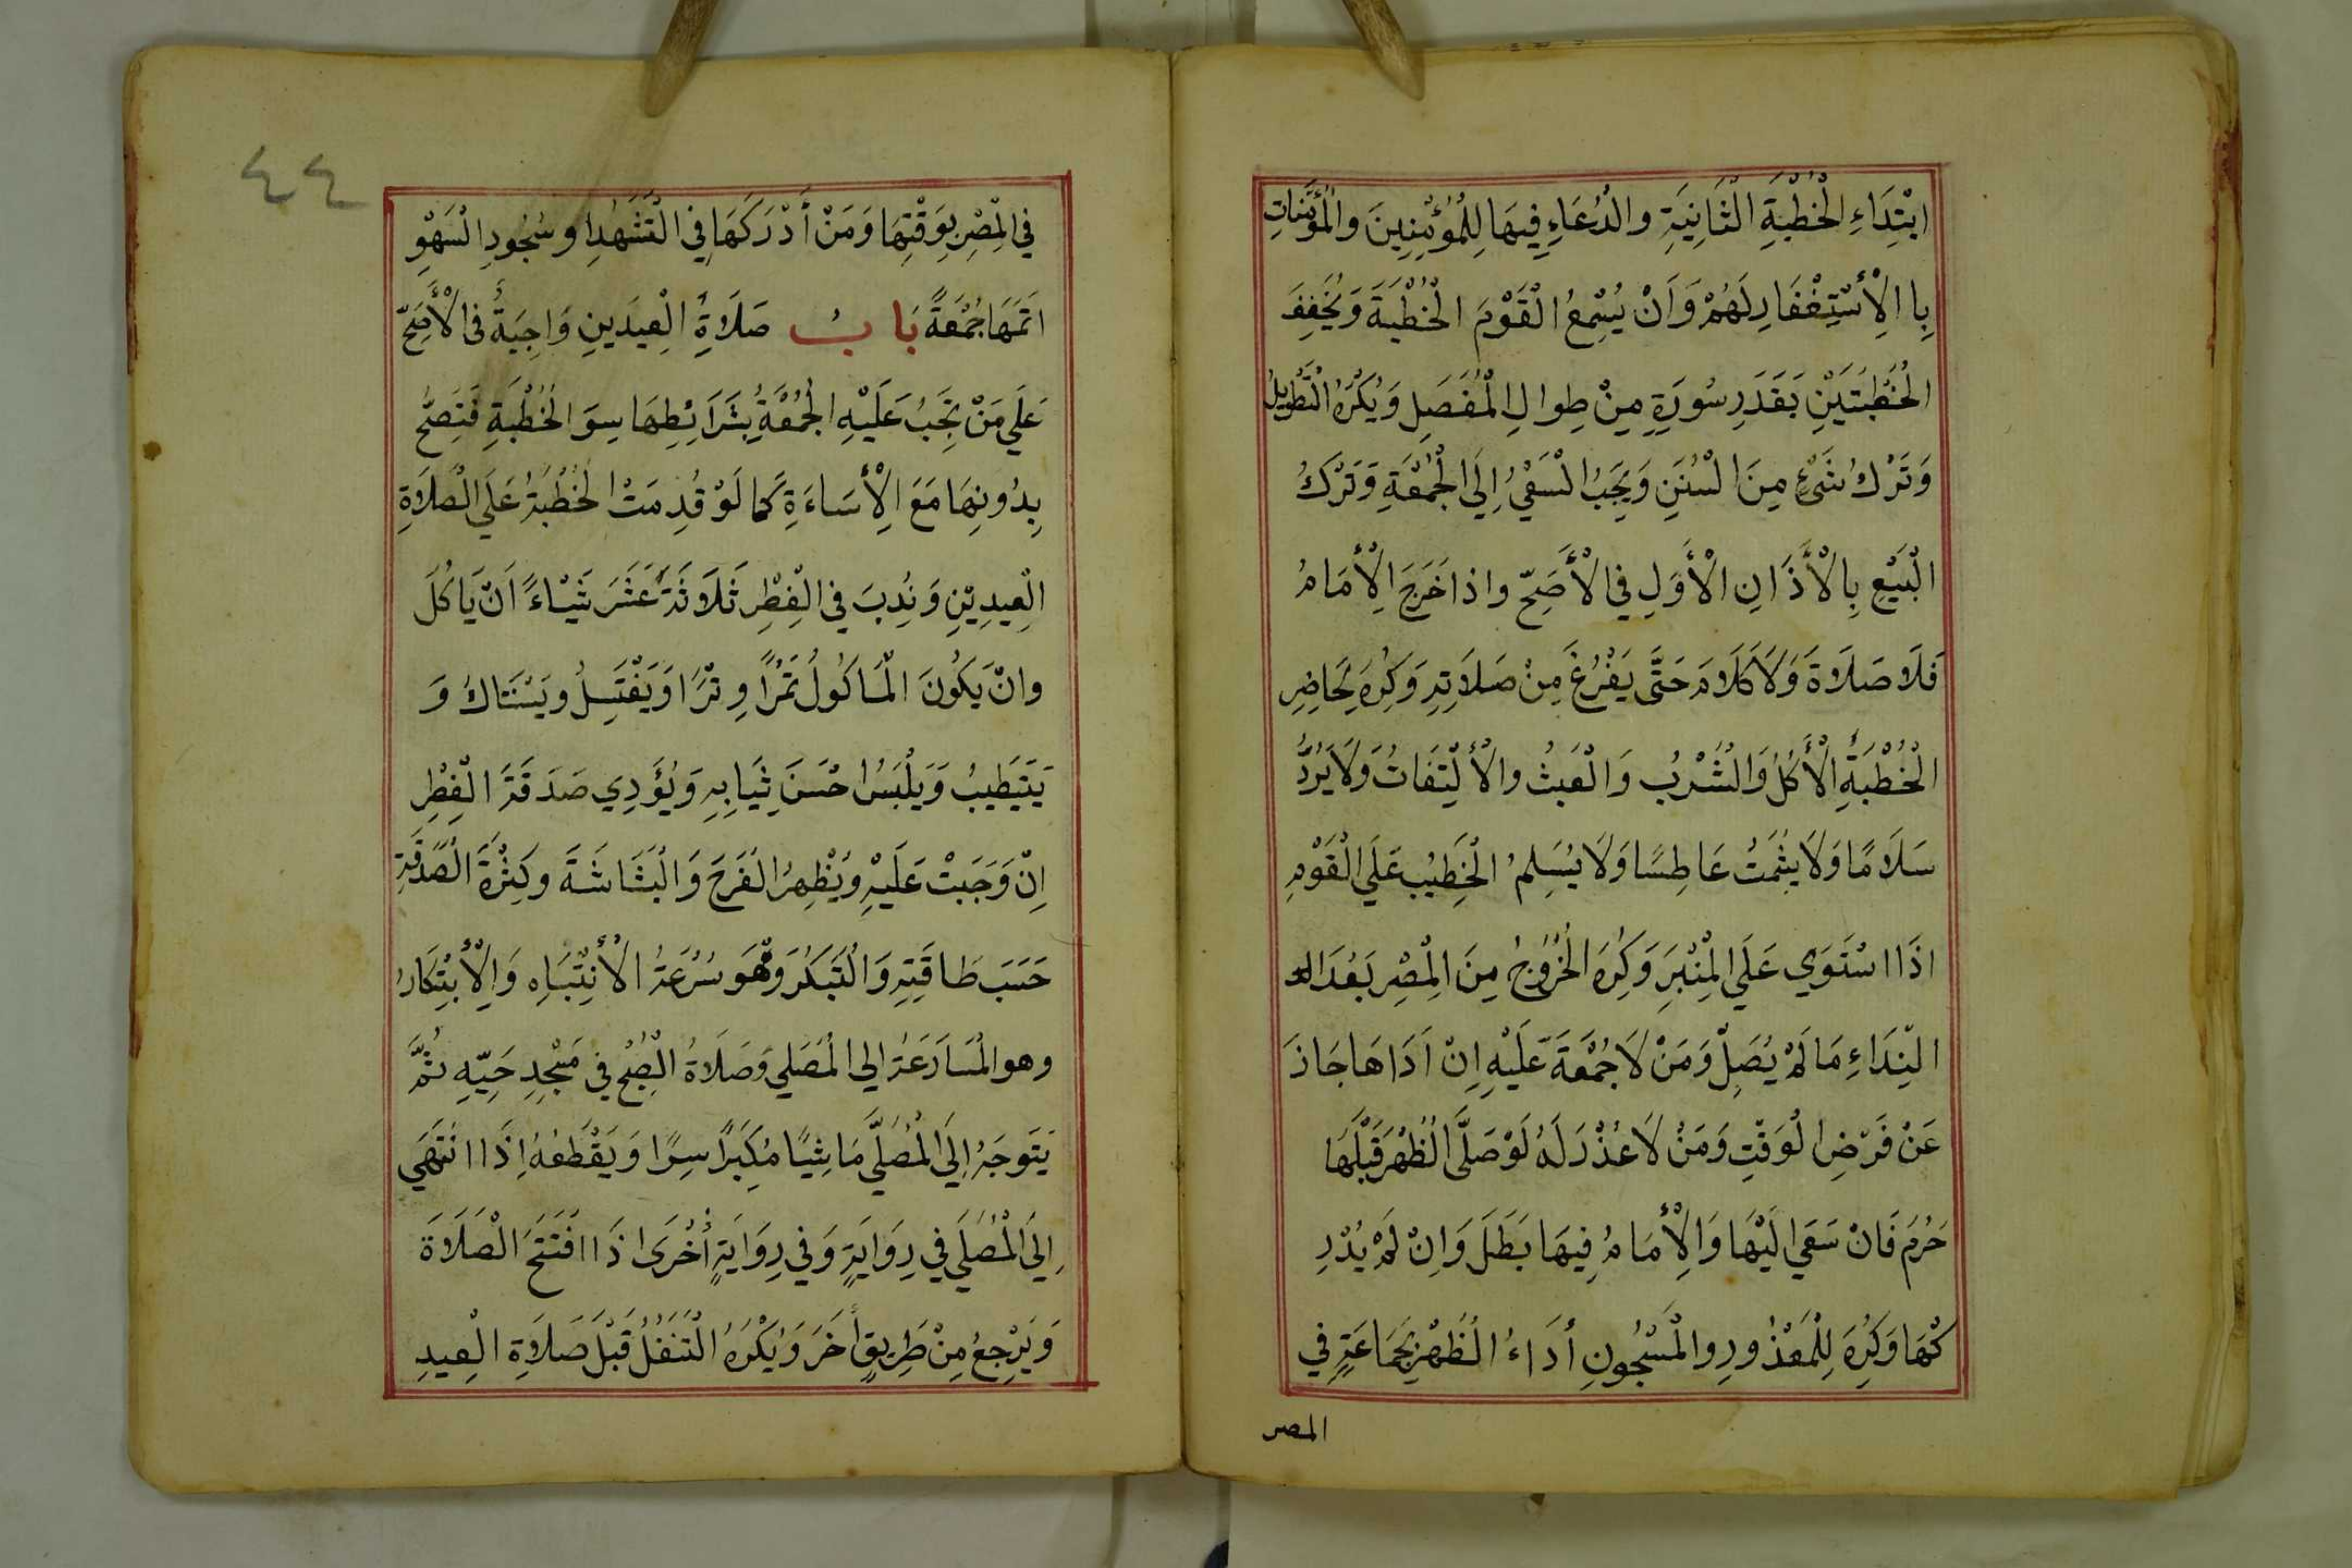 ابْتِدَاءِ الْخُطْبَةِ الثَّانِيَةِ والدُّعَاءِ فِيهَا لِلْمُؤْمِنِينَ والْمُؤْمِنَاتِ
بِا الْأِسْتِغْفَارِ لَهُمْ وَاَنْ يُسْمِعُ الْقَوْمَ الْخُطْبَةَ وَيُخَفِفَ
الْخُطْبَتَيْنِ بَقَدَرِ سُورَةٍ مِنْ طِوالِ الْمُفَصَلِ وَيُكْرَهُ التَّطْوِيلُ
وَتَرْكُ شَيْءٍ مِنَ السُنَنِ وَيَجِبُ السَعْيُ اِلَى الْجُمْعَةِ وَتَرْكُ
الْبَيْعِ بِالْأَذَانِ الْأَوَلِ فِي الْأَصَحِّ واذا خَرَجَ الْأِمَامُ
فَلَا صَلَاةَ وَلَا كَلَامَ حَتَّى يَفْرُغَ مِنْ صَلَاتِهِ وَكُرِهَ لِحَاضِرِ
الْخُطْبَةِ الْأَكْلُ وَالشُّرْبُ وَالْعَبَثُ والْأِلْتِفَاتُ وَلَا يَرُدُّ
سَلَامًا وَلَا يشْمَتُ عَاطِسًا وَلَا يُسَلِمُ الْخَطِيبُ عَلَى الْقَوْمِ
اذَا اسْتَوَي عَلَى الْمِنْبَرِ وَكُرِهَ الْخُرُوجُ مِنَ الْمِصْرِ بَعْدَ الد
النِدَاءِ مَالَمْ يُصَلِّ وَمَنْ لَا جُمْعَةَ عَلَيْهِ اِنْ اَدَاهَا جَازَ
عَنْ فَرْضِ الْوَقْتِ وَمَنْ لَا عُذْرَ لَهُ لَوْ صَلَّى الظُهْرَ قَبْلَهَا
حَرُمَ فَانْ سَعَي الَيْهَا وَالْأِمَامُ فِيهَا بَطَلَ وَاِنْ لَمْ يُدْرِ
كْهَا وَكُرِهَ لِلْمَعْذُورِ والْمَسْجُونِ أَدَاءُ الظُهْرِ بَجَمَاعَةٍ فِي
المصر
٤٤
فِي الْمِصْرِ بِوَقْتِهَا وَمَنْ أَدْرَكَهَا فِي التَشَهُدِ او سُجُودِ السَهْوِ
اَتَمَهَا جُمْعَةً بَابُ صَلَاةِ الْعِيدَينِ وَاجِبَةٌ فى الْأَصَحِّ
عَلَي مَنْ تَجِبُ عَلَيْهِ الْجُمْعَةُ بِشَرَائِطِهَا سِوَ الْخُطْبَةِ فَتَصِحُّ
بِدُونِهَا مَعَ الْأِسَاءَةِ كَما لَوْ قُدِمَتْ الْخُطْبَةُ عَلَى الصَلَاةِ
الْعِيدِيْنِ وَنُدِبَ فِي الْفِطْرِ ثَلَاثَةَ عَشَرَ شَيْاءً اَنْ يَاكُلَ
وانْ يَكُونَ الْمَاكُولُ تَمْرًا وِتْرًا وَيَغْتَسِلُ ويَسْتَاكُ وَ
يَتَيَطِيبُ وَيَلْبَسُ احْسَنَ ثِيَابِهِ وَيُؤَدِي صَدَقَةَ الْفِطْرِ
اِنْ وَجَبَتْ عَلَيْهِ وَيُظْهِرُ الْفَرَحَ وَالْبَشَاشَةَ وكَثْرَةَ الصَّدَقَةِ
حَسَبَ طَاقَتِهِ وَالتَبَكُرَ وَهُوَ سُرْعَةُ الْأِنْتِبَاهِ وَالْأِبْتِكَارُ
وهو المُسَارَعَةُ الي الْمُصَلي وَصَلَاةُ الْصُبْحِ فِي مَسْجِدِ حَيِّهِ ثُمَّ
يَتَوجَهُ اِلَي الْمُصَلَّي مَاشِيًا مُكَبِرًا سِرًا وَيَقْطَعُهُ اِذَا انْتَهَي
اِلَى الْمُصَلَي فِي رِوَايَةٍ وَفي رِوَايَةٍ أُخْرَى اذَا افْتَتَحَ الصَلَاةَ
وَيَرْجِعُ مِنْ طَرِيقٍ أَخَرَ وَيُكْرَهُ الْتَنَفُلُ قَبْلَ صَلَاةِ الْعِيدِ